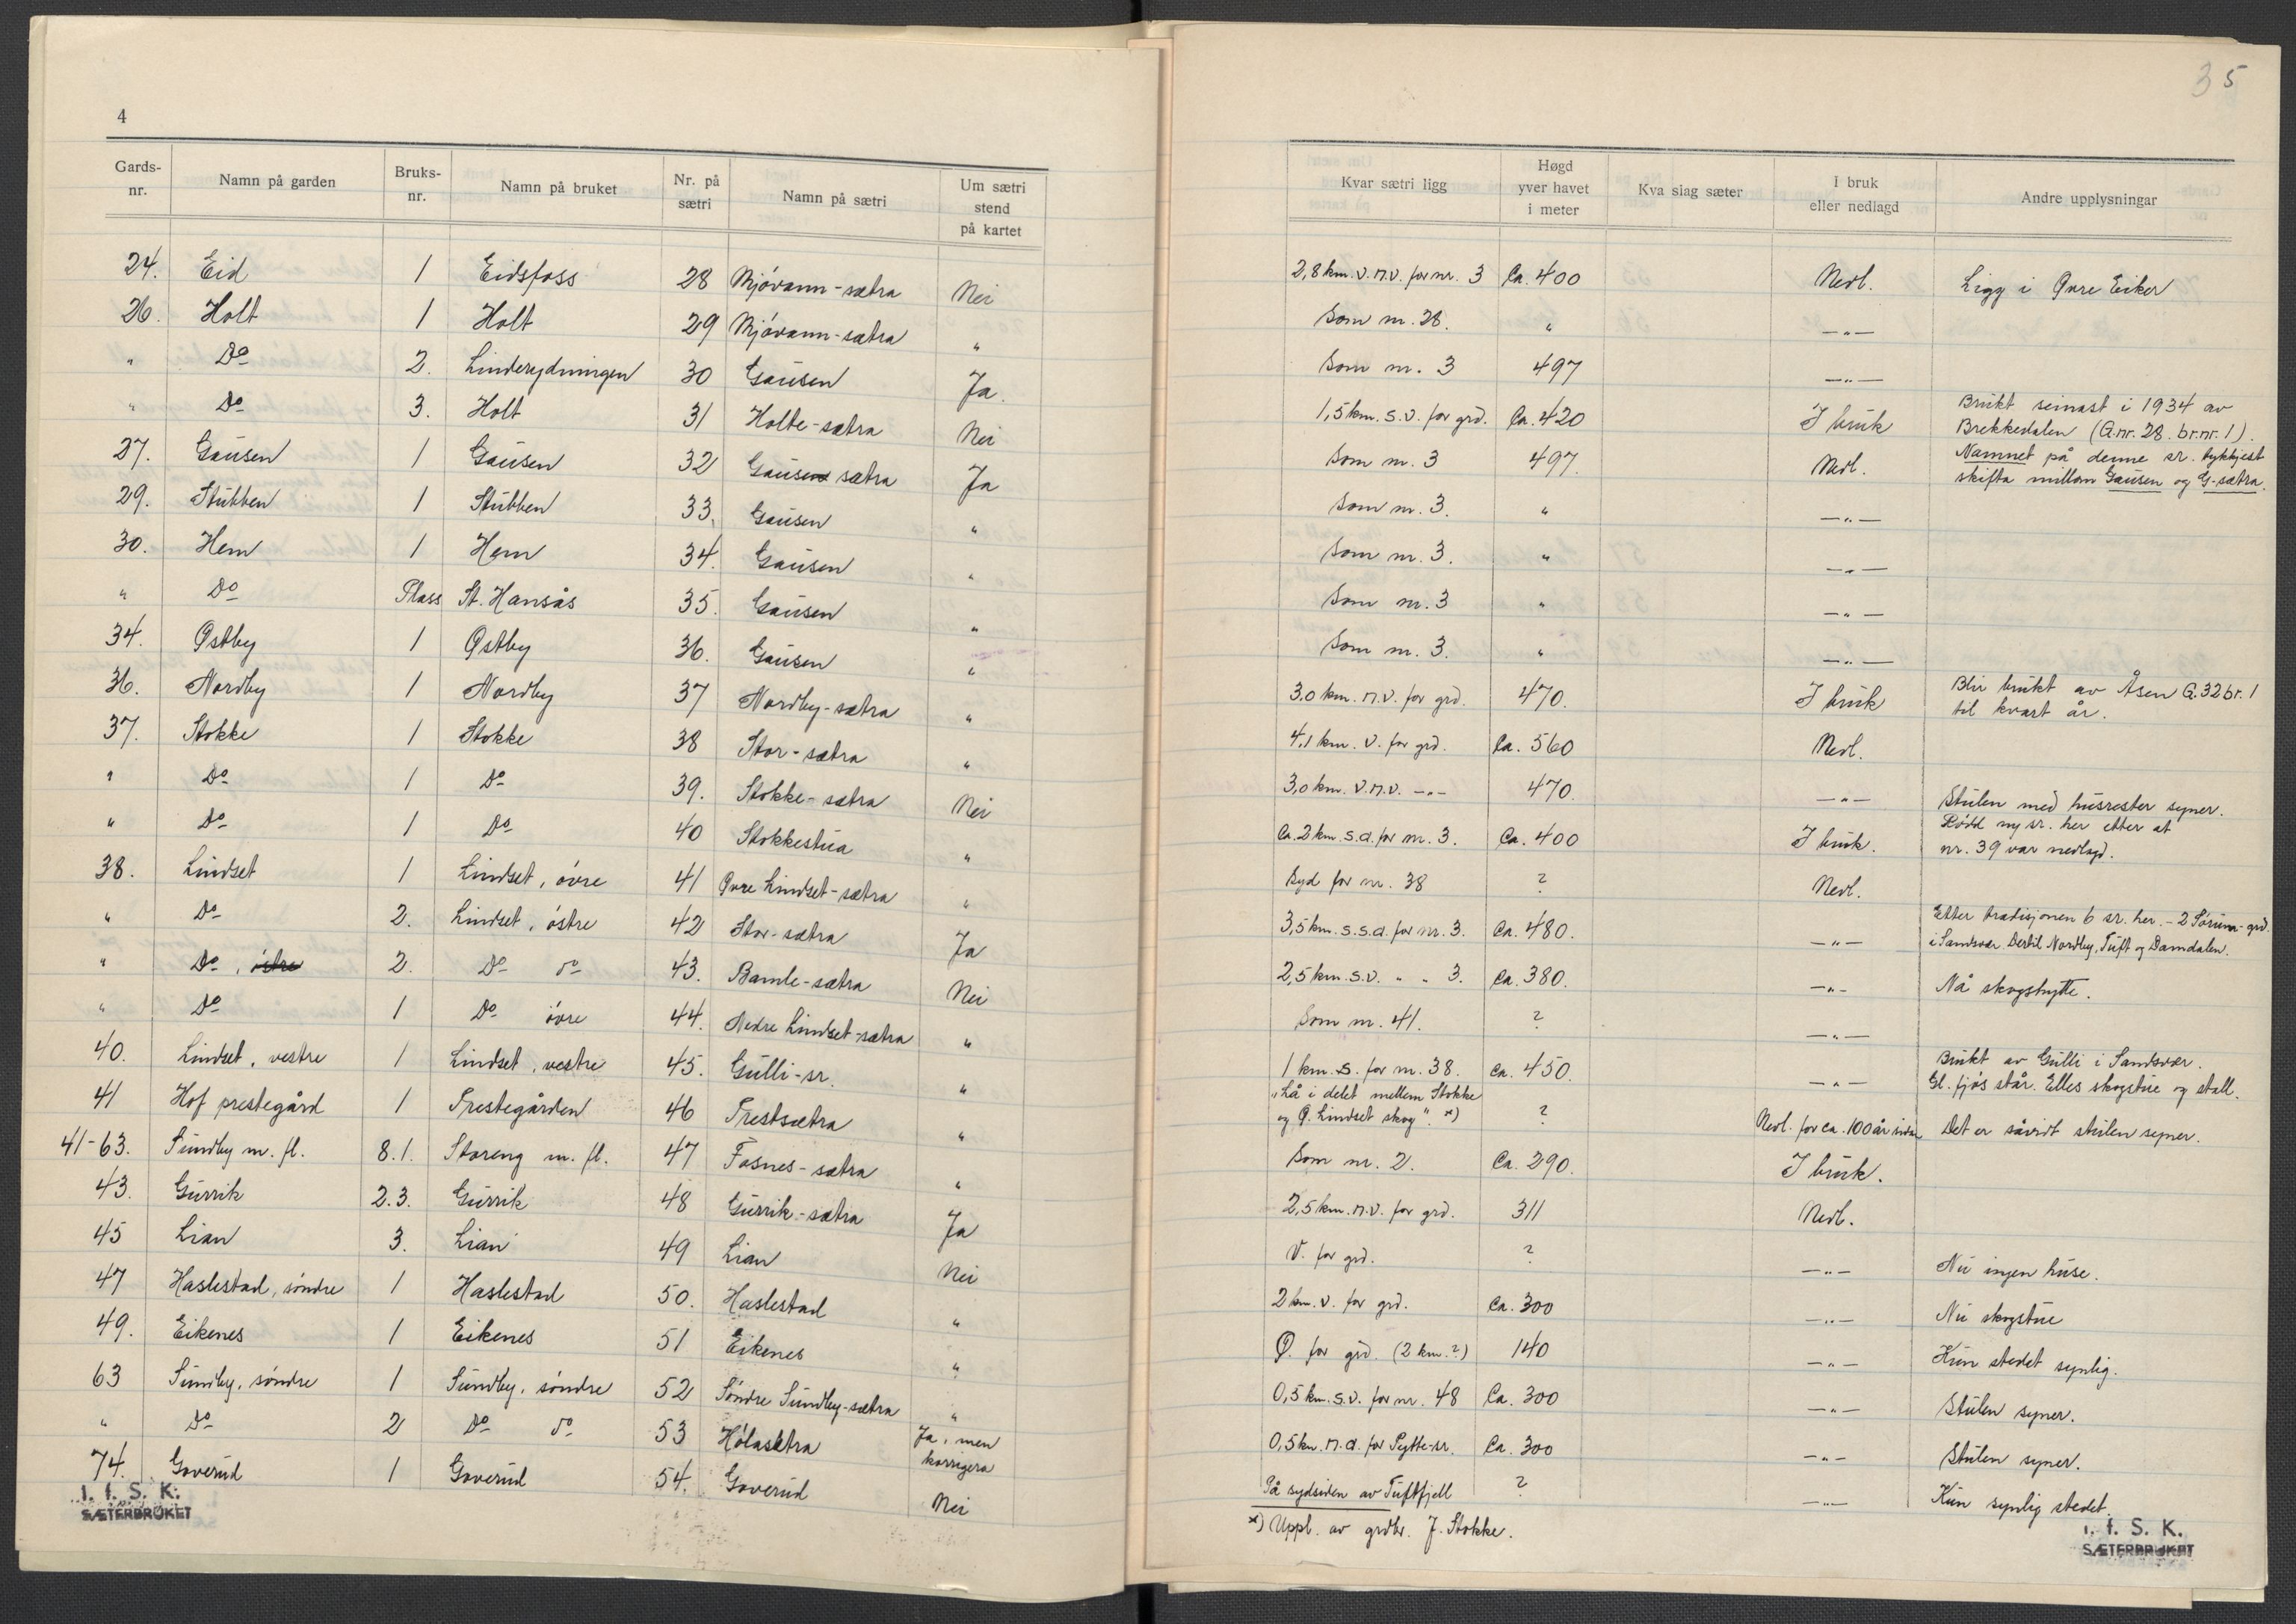 4
Gards-nr. Namn på garden Bruks-nr. Namn på bruket Nr. på sætri Namn på sætri Um sætri stend på kartet
24. Eid 1 Eidsfoss 28 Mjövann-sætra Nei
26. Holt 1 Holt 29 Mjövann-sætra "
" Do 2. Linderydningen 30 Gausen Ja.
" Do 3. Holt 31 Holte-sætra Nei
27. Gausen 1 Gausen 32 Gausen sætra Ja
29. Stubben 1 Stubben 33. Gausen "
30. Hem 1 Hem 34. Gausen "
" Do Plass St. Hansås 35. Gausen "
34. Østby 1 Østby 36. Gausen "
36. Nordby 1 Nordby 37 Nordby-sætra "
37. Stokke 1 Stokke 38 Stor-sætra "
" Do 1 Do 39. Stokke-sætra Nei
" Do 1 Do 40 Stokkestua "
38. Lindset 1 Lindset, övre 41 Øvre Lindset-sætra "
" Do 2. Lindset, östre 42 Stor-sætra Ja
" Do, östre 2. Do do 43. Bamle-sætra Nei
" Do 1 Do övre 44. Nedre Lindset-sætra "
40. Lindset, vestre 1 Lindset, vestre 45. Gulli-sr. "
41 Hof prestegård 1 Prestegården 46 Prestsætra "
41-63. Sundby m. fl. 8.1. Storeng m. fl. 47 Fosnes-sætra "
43. Gurrik 2.3. Gurrik 48 Gurrik-sætra Ja
45 Lian 3. Lian 49 Lian Nei
47 Haslestad, söndre 1 Haslestad 50. Haslestad "
49. Eikenes 1 Eikenes 51 Eikenes "
63 Sundby, söndre 1 Sundby, söndre 52 Söndre Sundby-sætra "
" Do 2 Do do 53 Hólasætra Ja, men korrigera
74. Goverud 1 Goverud 54. Goverud Nei
I. f. S. K.
SÆTERBRUKET
35
Kvar sætri ligg Høgd yver havet i meter Kva slag sæter I bruk eller nedlagd Andre upplysningar
2,8 km. v.n.v. for nr. 3 Ca. 400 Nedl. Ligg i Øvre Eiker
Som nr. 28. " —"—
Som nr. 3 497 —"—
1,5 km. s.v. for grd. Ca. 420 I bruk Brukt seinast i 1934 av
Brekkedalen (G.nr. 28. br.nr. 1).
Som nr. 3 497. Nedl. Namnet på denne sr. tykkjest
skifta millom Gausen og G-sætra.
Som nr. 3. " —"—
Som nr. 3. " —"—
Som nr. 3 " —"—
Som nr. 3. " —"—
3,0 km. n.v. for grd. 470. I bruk Blir brukt av Åsen G.32 br. 1
til kvart år.
4,1 km. v. for grd. Ca. 560 Nedl.
3,0 km. v.n.v. —"— 470. —"— Stulen med husrester syner.
Ca. 2 km. s.a. for nr. 3. Ca. 400 I bruk. Rödd ny sr. her etter at
nr. 39 var nedlagd.
Syd for nr. 38 ? Nedl.
3,5 km. s.s.a. for nr. 3. Ca. 480. —"— Etter tradisjonen 6 sr. her. - 2 Sörum-grd.
i Sandsvær. Dertil Nordby, Tuft og Damdalen.
2,5 km. s.v. " " 3. Ca. 380. —"— Nå skogshytte.
Som nr. 41. ? —"—
1 km. s. for nr. 38. Ca. 450. —"— Brukt av Gulli i Sandsvær.
Gl. fjös står. Elles skogstue og stall.
"Lå i delet mellem Stokke
og Ø. Lindset skog". x) ? Nedl. for ca. 100 år sidan Det er såvidt stulen syner.
Som nr. 2. Ca. 290. I bruk.
2,5 km. n.v. for grd. 311 Nedl.
V. for grd. ? —"— Nu ingen huse.
2 km. v. for grd. Ca. 300 —"— Nu skogstue
Ø. for grd. (2 km.?) 140 —"— Kun stedet synlig.
0,5 km. s.v. for nr. 48 Ca. 300 —"— Stulen syner.
0,5 km. n.a. for Pytte-sr. Ca. 300 —"— Stulen syner.
På sydsiden av Tuftfjell ? —"— Kun synlig stedet.
x) Uppl. av grdbr. J. Stokke.
I. f. S. K.
SÆTERBRUKET